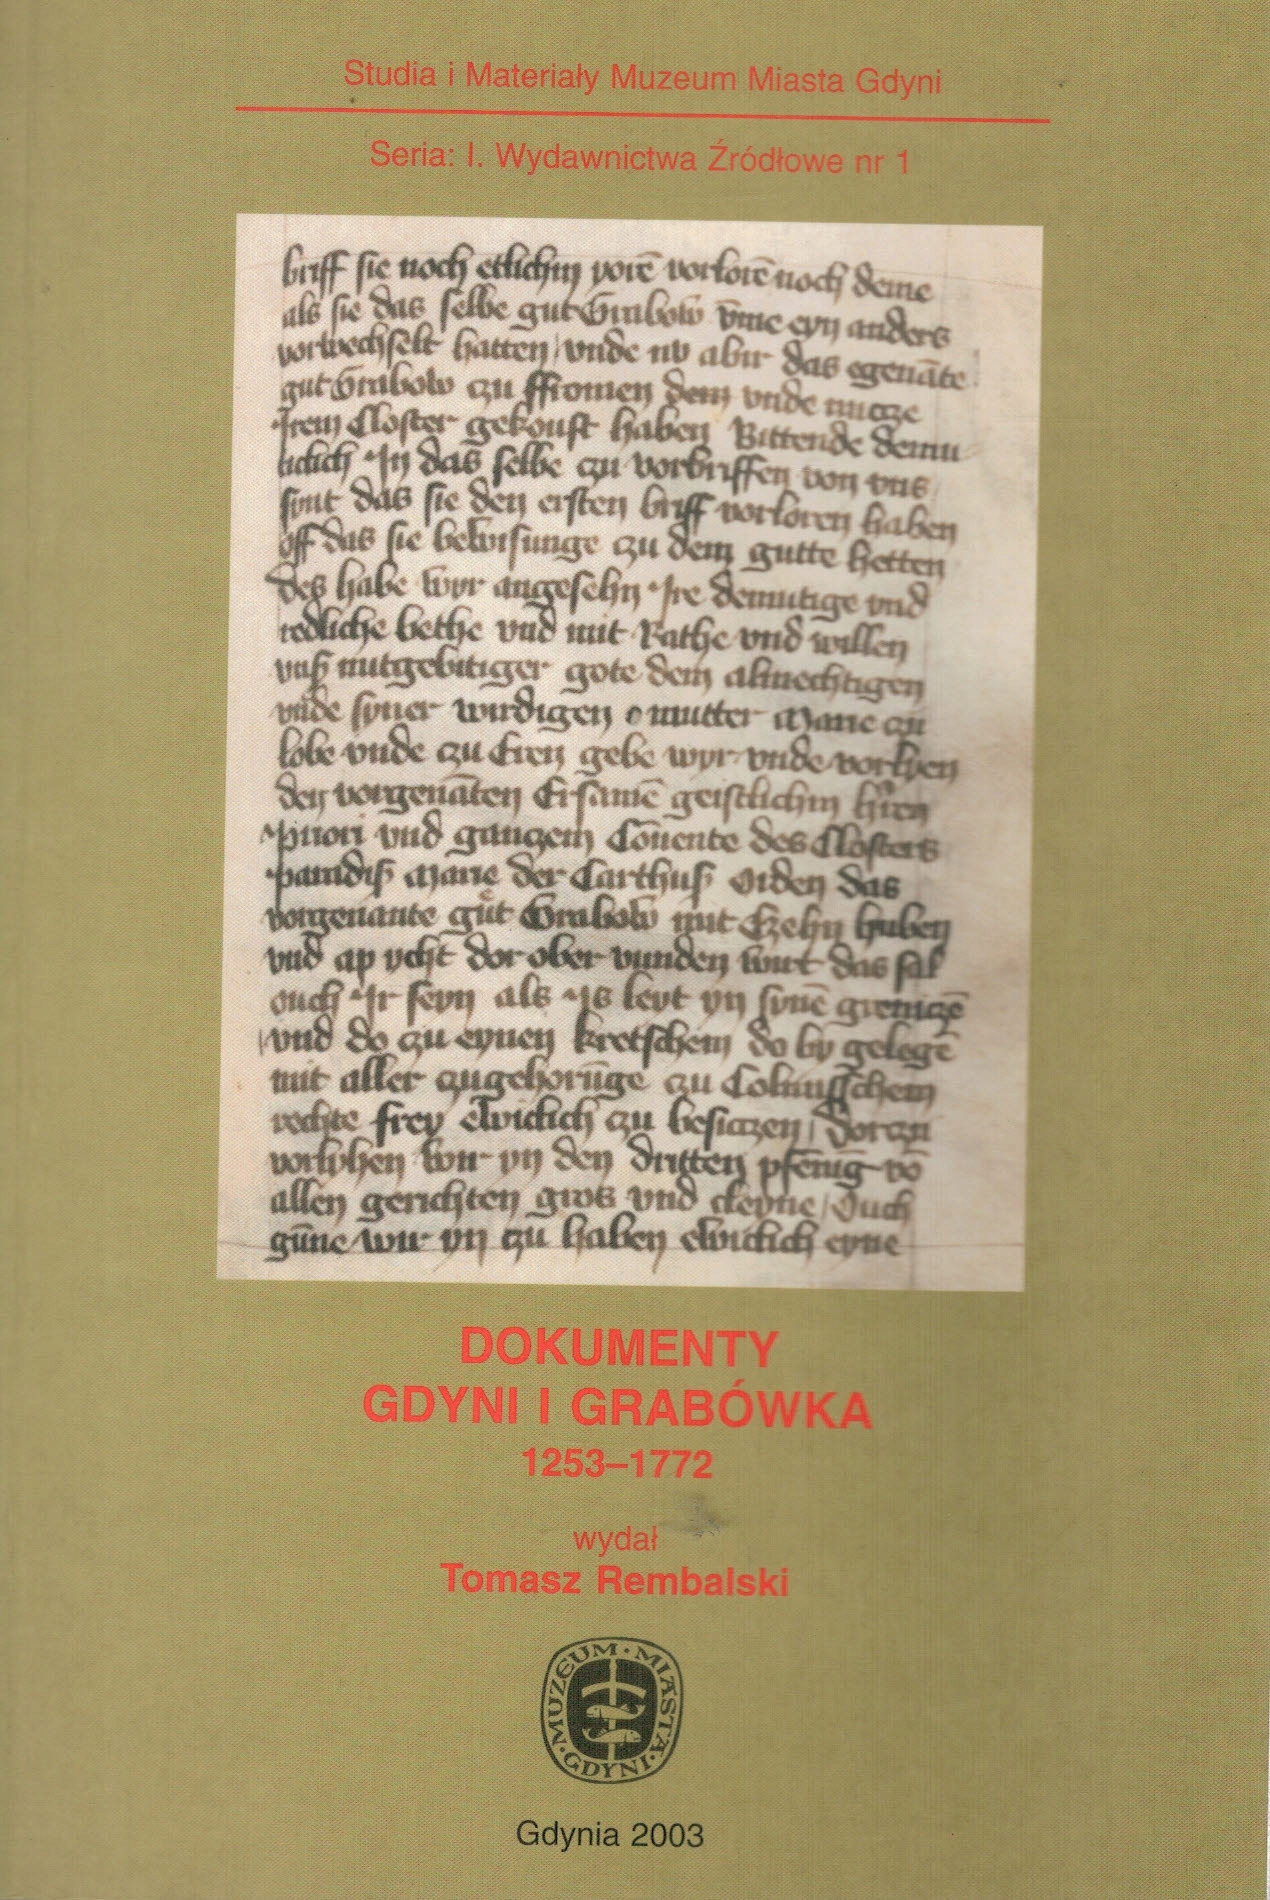 Studia i Materiały Muzeum Miasta Gdyni
Seria: I. Wydawnictwa Źródłowe nr 1
briff sie noch etlichin vorlorē noch deme
als sie das selbe gut Grabow vm̄e eyn anders
vorwechselt hatten / vnde nv abir das egenāte
gut Grabow czu ffromen dem vnde nucze
Irem Closter gekouft haben Bittende demu
ticlich In das selbe czu vorbriffen von vns
synt das sie den ersten briff vorloren haben
off das sie bewisunge czu dem gutte hetten
Des habe wyr angesehn Ire demutige vnd
redliche bethe vnd mit Rathe vnd willen
vnß mitgebitiger gote dem almechtigen
vnde syner wirdigen mutter Marie czu
lobe vnde czu Eren gebe wyr vnde vorlyen
den vorgenāten Ersamē geistlichin hēren
Priori vnd ganczem Cōuente des Closters
paradiß Marie der Carthuß Orden das
vorgenante gut Grabow mit Czehn huben
vnd ap ycht dor ober vunden wirt das sal
ouch Ir seyn als Is leyt yn synē greniczē
vnd do czu eynen kretschem do by gelegē
mit aller czugehorūge czu Colmisschem
rechte frey ewiclich czu besiczen / Dorczu
vorlyhen wir yn den dritten pfēnig vō
allen gerichten gros vnd cleyne / Ouch
gūne wir yn czu haben ewiclich eyne
DOKUMENTY
GDYNI I GRABÓWKA
1253–1772
wydał
Tomasz Rembalski
MUZEUM · MIASTA · GDYNI ·
Gdynia 2003